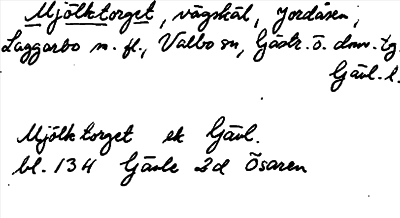 Mjölktorget, vägskäl, Jordåsen,
Laggarbo m. fl., Valbo sn, Gästr. ö. dmr. tg.
Gävl. l.
Mjölktorget ek Gävl.
bl. 13H Gävle 2d Ösaren